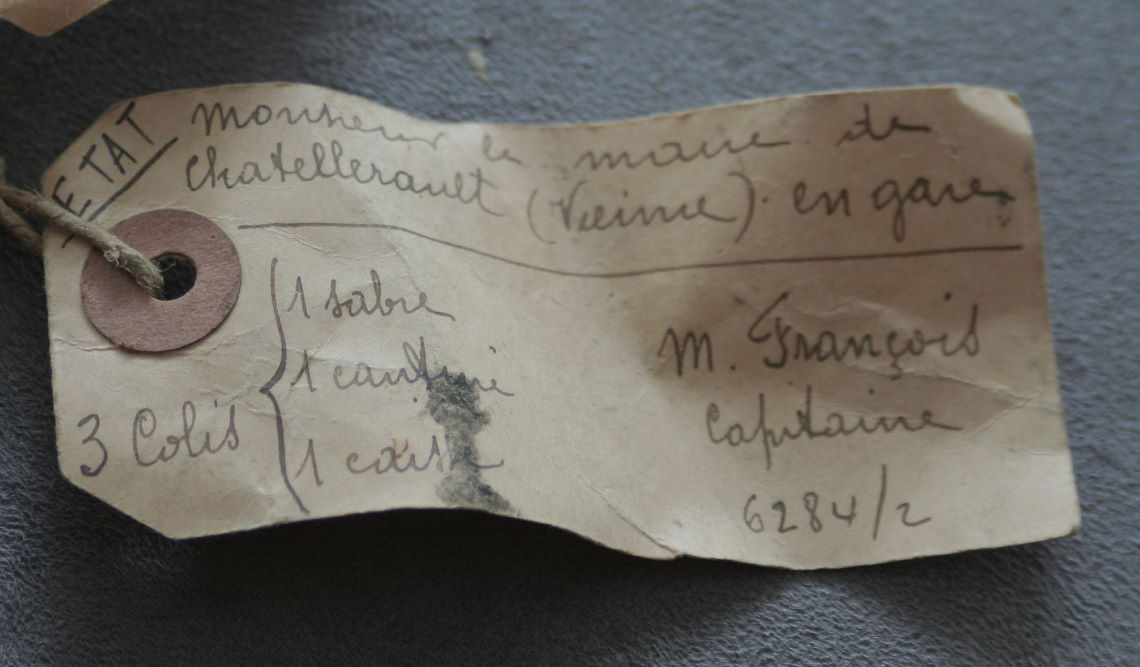 ETAT
Monsieur le maire de
Chatellerault (Vienne). en gare
3 Colis
1 sabre
1 cantine
1 caisse
M. François
Capitaine
6284/2